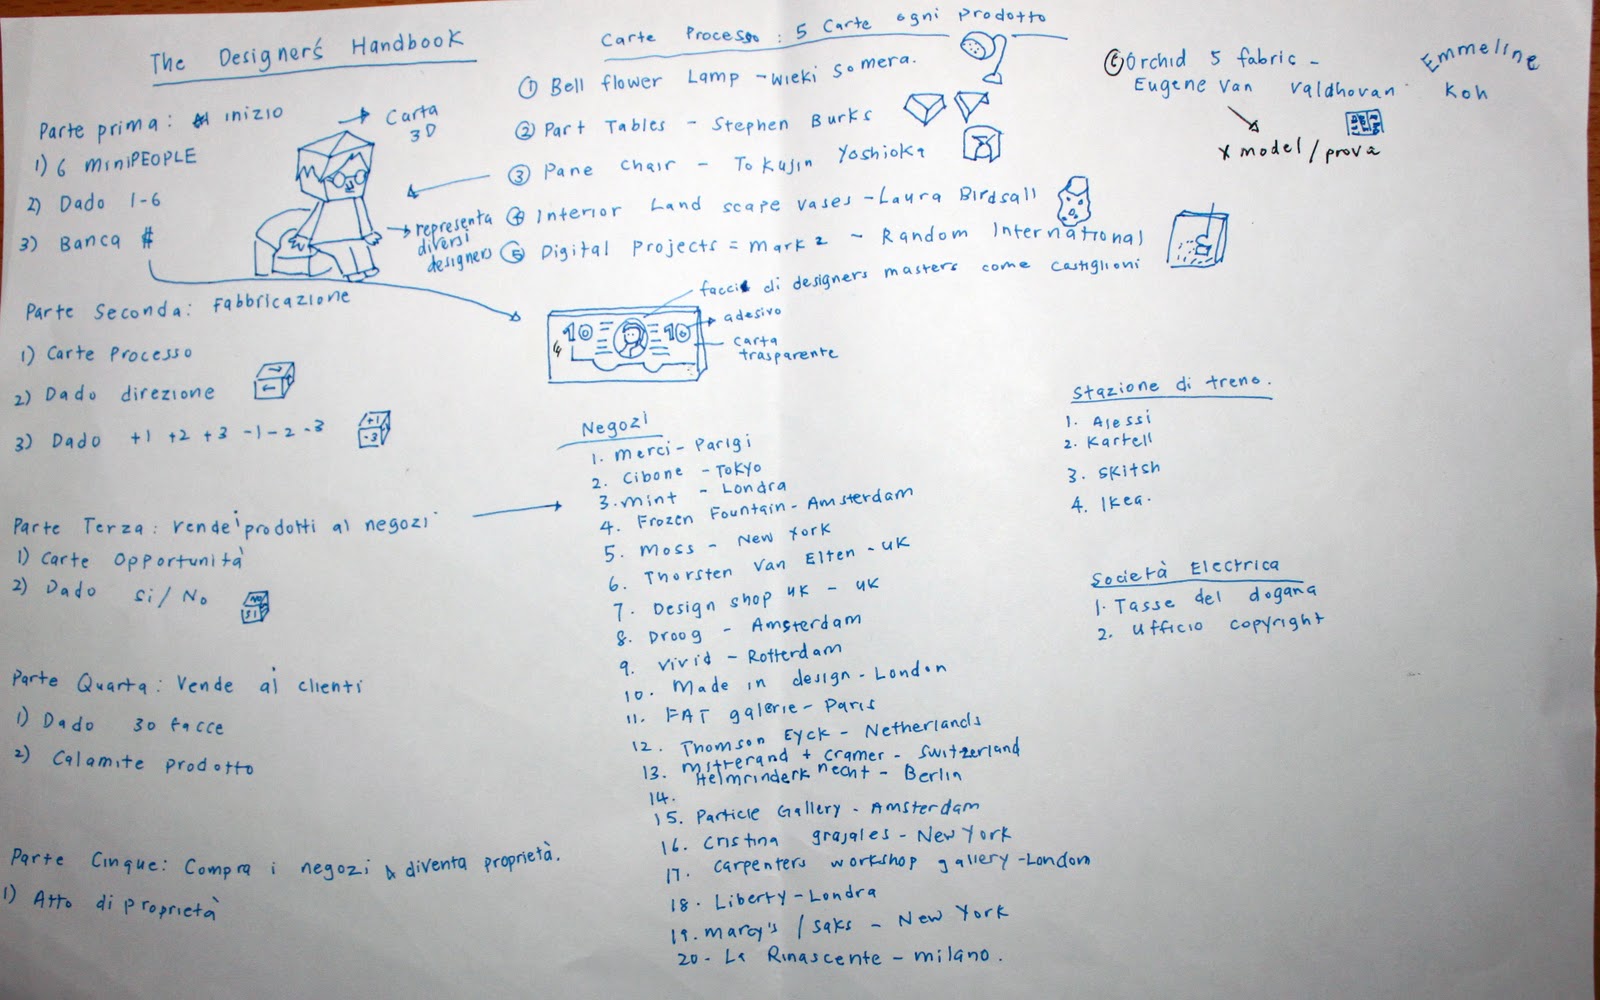 The Designer's Handbook
Parte prima: inizio
1) 6 miniPEOPLE
2) Dado 1-6
3) Banca #
Carta
3D
representa
diversi
designers
Parte Seconda: Fabbricazione
1) Carte Processo
2) Dado direzione
3) Dado +1 +2 +3 -1 -2 -3
+1
-3
Parte Terza: vende i prodotti ai negozi
1) Carte Opportunità
2) Dado Si/No
NO
SI
Parte Quarta: Vende ai clienti
1) Dado 30 facce
2) Calamite prodotto
Parte Cinque: Compra i negozi & diventa proprietà.
1) Atto di proprietà
Carte Processo: 5 Carte ogni prodotto
1 Bell flower Lamp - Wieki Somera.
2 Part Tables - Stephen Burks
3 Pane Chair - Tokujin Yoshioka
4 Interior Land scape vases - Laura Birdsall
5 Digital Projects = mark 2 - Random International
faccie di designers masters come Castiglioni
10 10
adesivo
carta
trasparente
Negozi
1. Merci - Parigi
2. Cibone - Tokyo
3. mint - Londra
4. Frozen Fountain - Amsterdam
5. Moss - New York
6. Thorsten Van Elten - UK
7. Design shop UK - UK
8. Droog - Amsterdam
9. Vivid - Rotterdam
10. Made in design - London
11. FAT galerie - Paris
12. Thomson Eyck - Netherlands
13. Mitterand + Cramer - Switzerland
14. Helmrinderknecht - Berlin
15. Particle Gallery - Amsterdam
16. Cristina grajales - New York
17. Carpenters workshop gallery - London
18. Liberty - Londra
19. Marcy's / Saks - New York
20. La Rinascente - milano.
6 Orchid 5 fabric -
Eugene Van Valdhovan
x model / prova
Emmeline
Koh
Stazione di treno.
1. Alessi
2. Kartell
3. Skitsh
4. Ikea.
Società Electrica
1. Tasse del dogana
2. Ufficio copyright